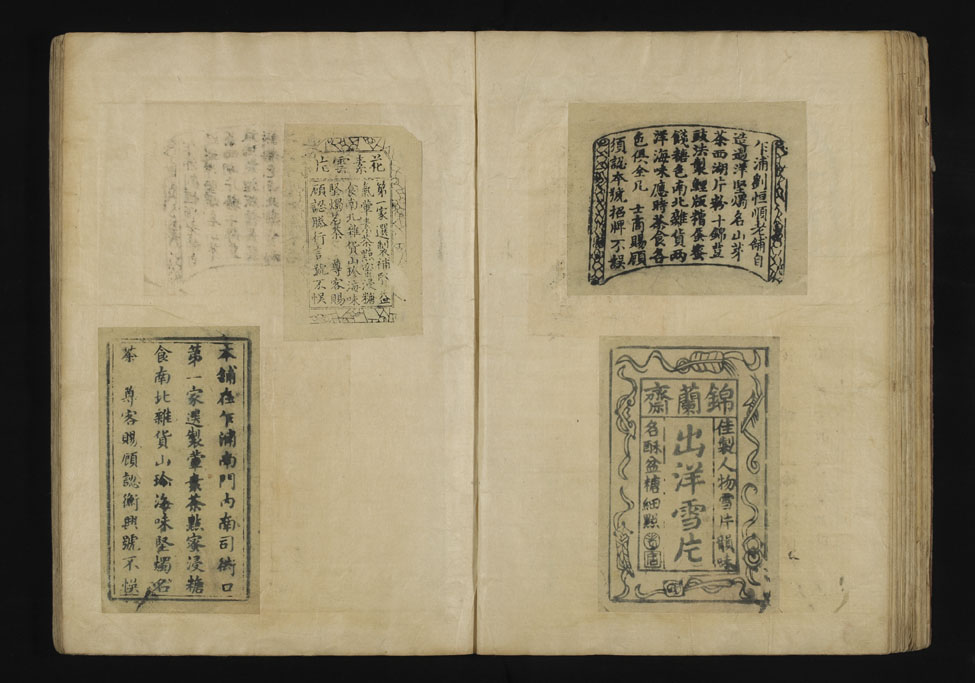 乍浦劉恒順老舖自
造過洋堅燭名山芽
茶西湖片粉十錦荳
豉法製鯉版糟蛋蜜
餞糖色南北雜貨兩
洋海味應時茶食各
色俱全凡 士商賜顧
須認本號招牌不誤
錦蘭齋
佳製人物雪片韻味
出洋雪片
名酥盆糖細點
花素雲片
第一家選製補益
氣葷素茶點蜜浸糖
食南北雜貨山珍海味
堅燭茗茶 尊客賜
顧認號不悞
本舖在乍浦南門内南司衖口
第一家選製葷素茶點蜜浸糖
食南北雜貨山珍海味堅燭名
茶 尊客賜顧認衡興號不悞